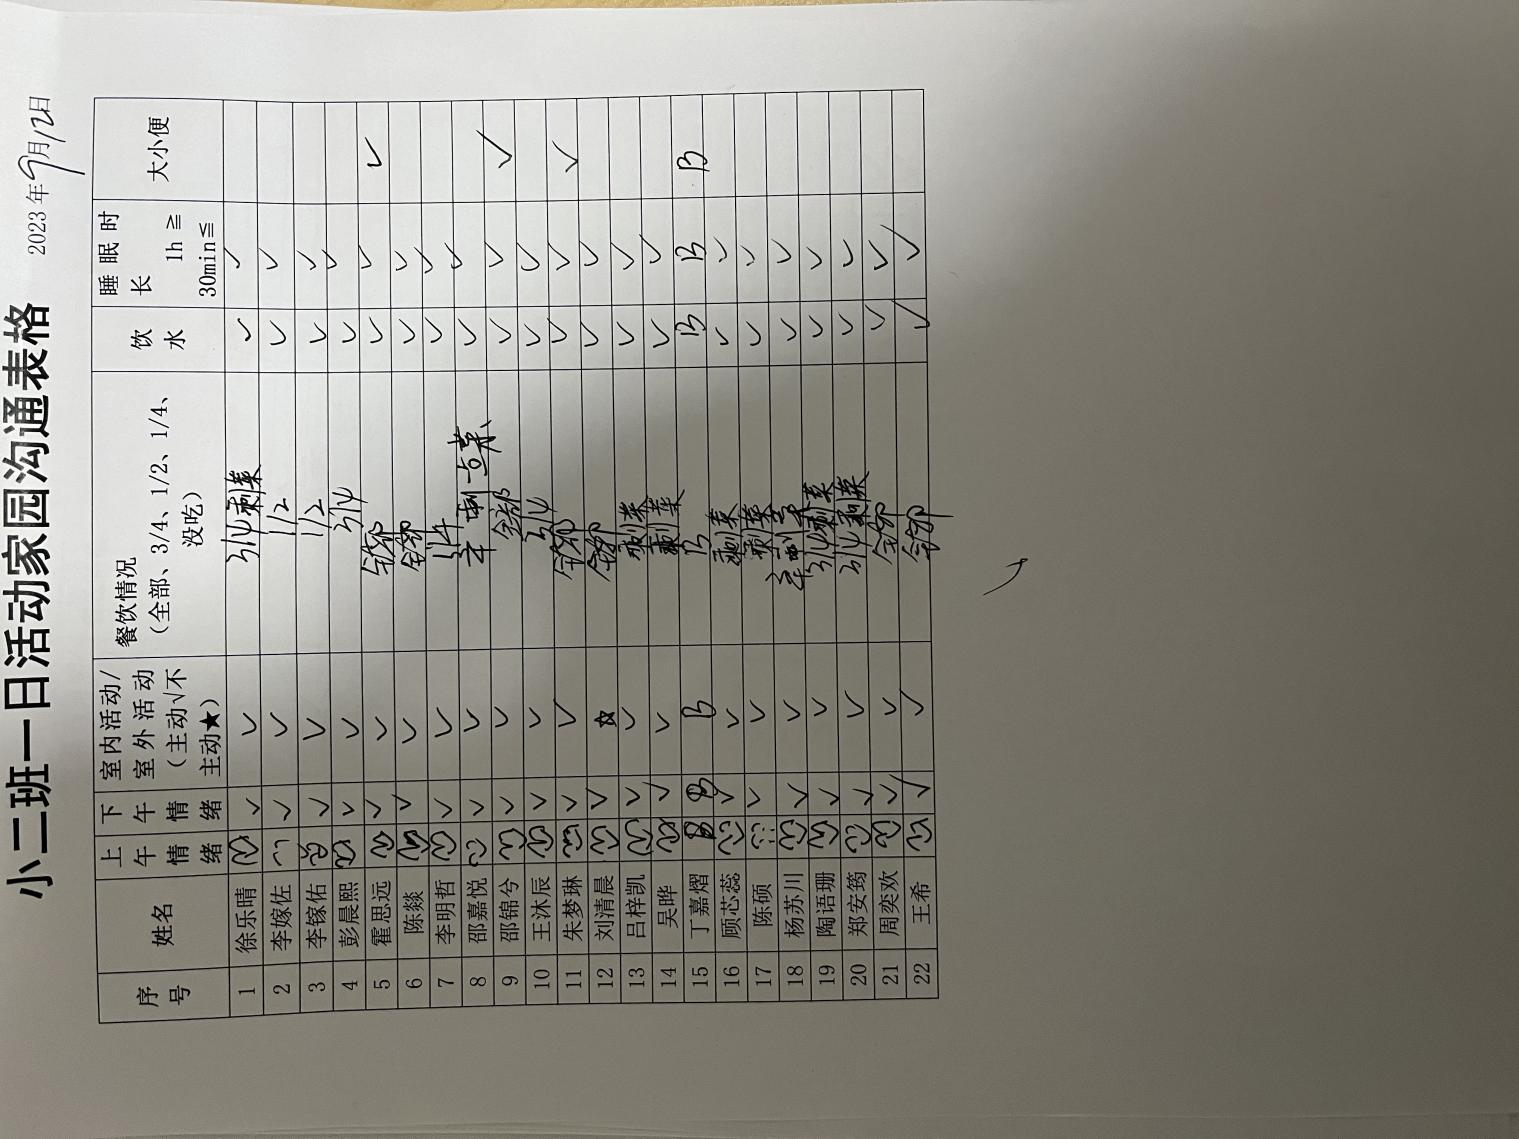 小二班一日活动家园沟通表格
2023年9月12日
序号 姓名 上午情绪 下午情绪 室内活动/室外活动（主动√不主动★） 餐饮情况（全部、3/4、1/2、1/4、没吃） 饮水 睡眠时长 1h≧ 30min≦ 大小便
1 徐乐晴 √ √ 3/4 剩菜 √ √
2 李嫁佐 √ √ 1/2 √ √
3 李镓佑 √ √ 1/2 √ √
4 彭晨熙 √ √ 3/4 √ √
5 霍思远 √ √ 全部 √ √ √
6 陈燚 √ √ 全部 √ √
7 李明哲 √ √ √ √
8 邵嘉悦 √ √ √ √
9 邵锦兮 √ √ 全部 √ √ √
10 王沐辰 √ √ 3/4 √ √
11 朱梦琳 √ √ 全部 √ √ √
12 刘清晨 √ ☆ 全部 √ √
13 吕梓凯 √ √ 剩菜 √ √
14 吴晔 √ √ 剩菜 √ √
15 丁嘉熠 B B B B B B B
16 顾芯蕊 √ √ 剩菜 √ √
17 陈硕 √ √ 剩菜 √ √
18 杨苏川 √ √ √ √
19 陶语珊 √ √ 3/4 剩菜 √ √
20 郑安筠 √ √ 3/4 剩菜 √ √
21 周奕欢 √ √ 全部 √ √
22 王希 √ √ 全部 √ √